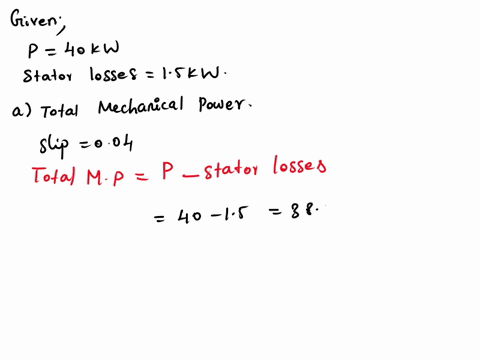 Given;
P = 40 kW
Stator losses = 1.5 kW.
a) Total Mechanical Power.
Slip = 0.04
Total M.P = P - stator losses
= 40 - 1.5 = 38.